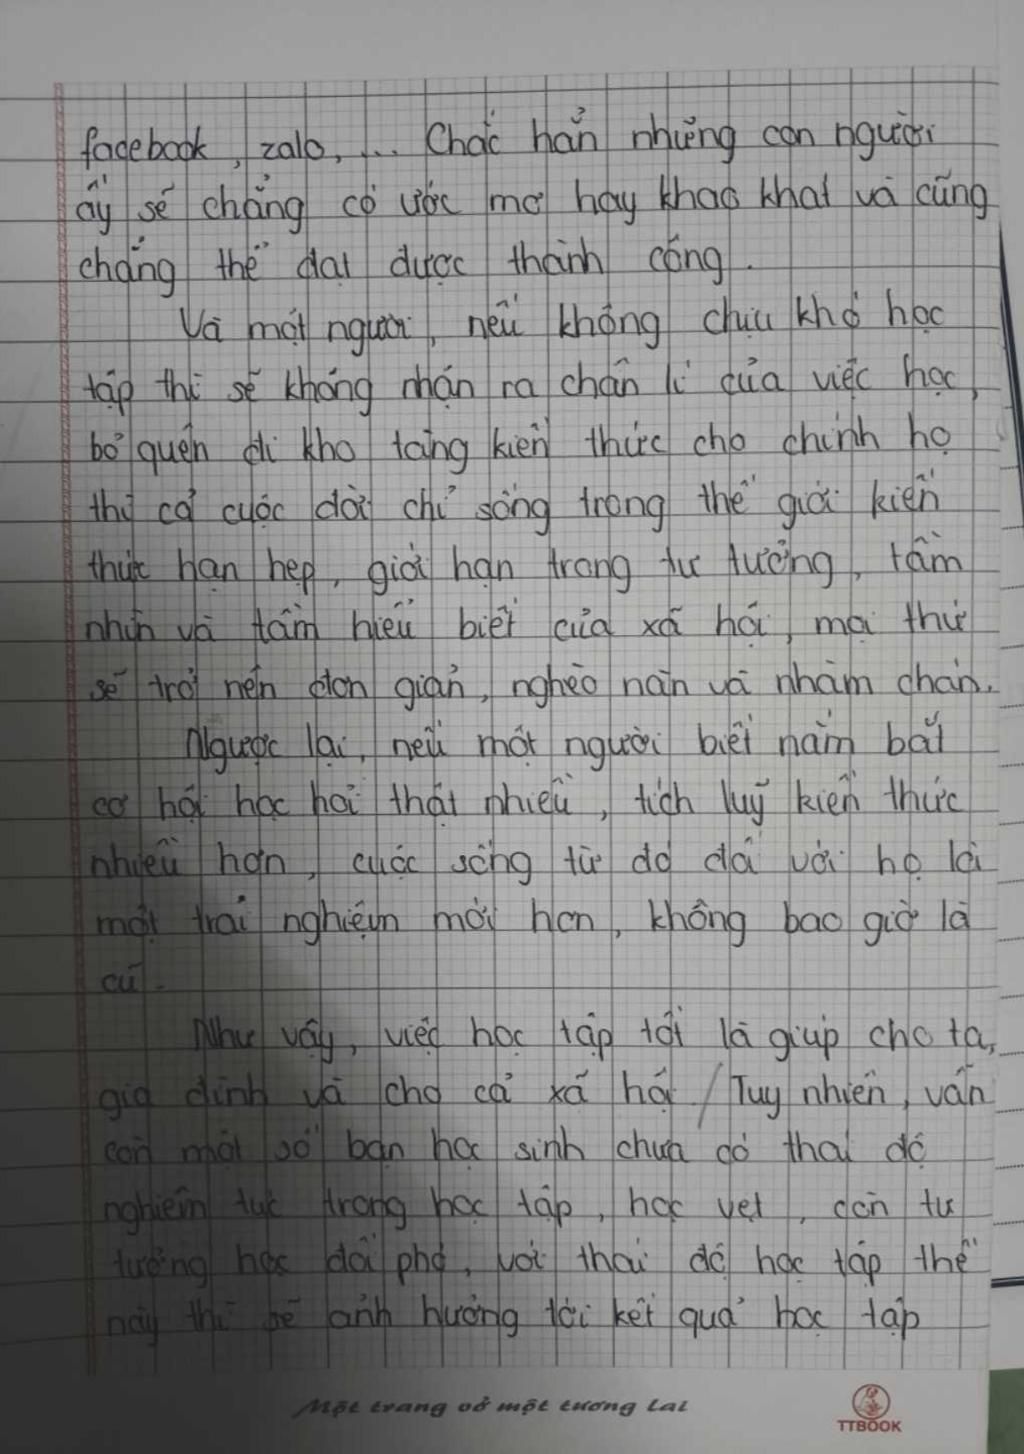 facebook, zalo, ... Chắc hẳn những con người
ấy sẽ chẳng có ước mơ hay khao khát và cũng
chẳng thể đạt được thành công.
Và một người, nếu không chịu khó học
tập thì sẽ không nhận ra chân lí của việc học,
bỏ quên đi kho tàng kiến thức cho chính họ
thì cả cuộc đời chỉ sống trong thế giới kiến
thức hạn hẹp, giới hạn trong tư tưởng, tầm
nhìn và tầm hiểu biết của xã hội, mọi thứ
sẽ trở nên đơn giản, nghèo nàn và nhàm chán.
Ngược lại, nếu một người biết nắm bắt
cơ hội học hỏi thật nhiều, tích luỹ kiến thức
nhiều hơn, cuộc sống từ đó đối với họ là
một trải nghiệm mới hơn, không bao giờ là
cũ.
Như vậy, việc học tập tốt là giúp cho ta,
gia đình và cho cả xã hội / Tuy nhiên, vẫn
còn một số bạn học sinh chưa có thái độ
nghiêm túc trong học tập, học vẹt, còn tư
tưởng học đối phó, với thái độ học tập thế
này thì sẽ ảnh hưởng tới kết quả học tập
Một trang vở một tương lai
TTBOOK